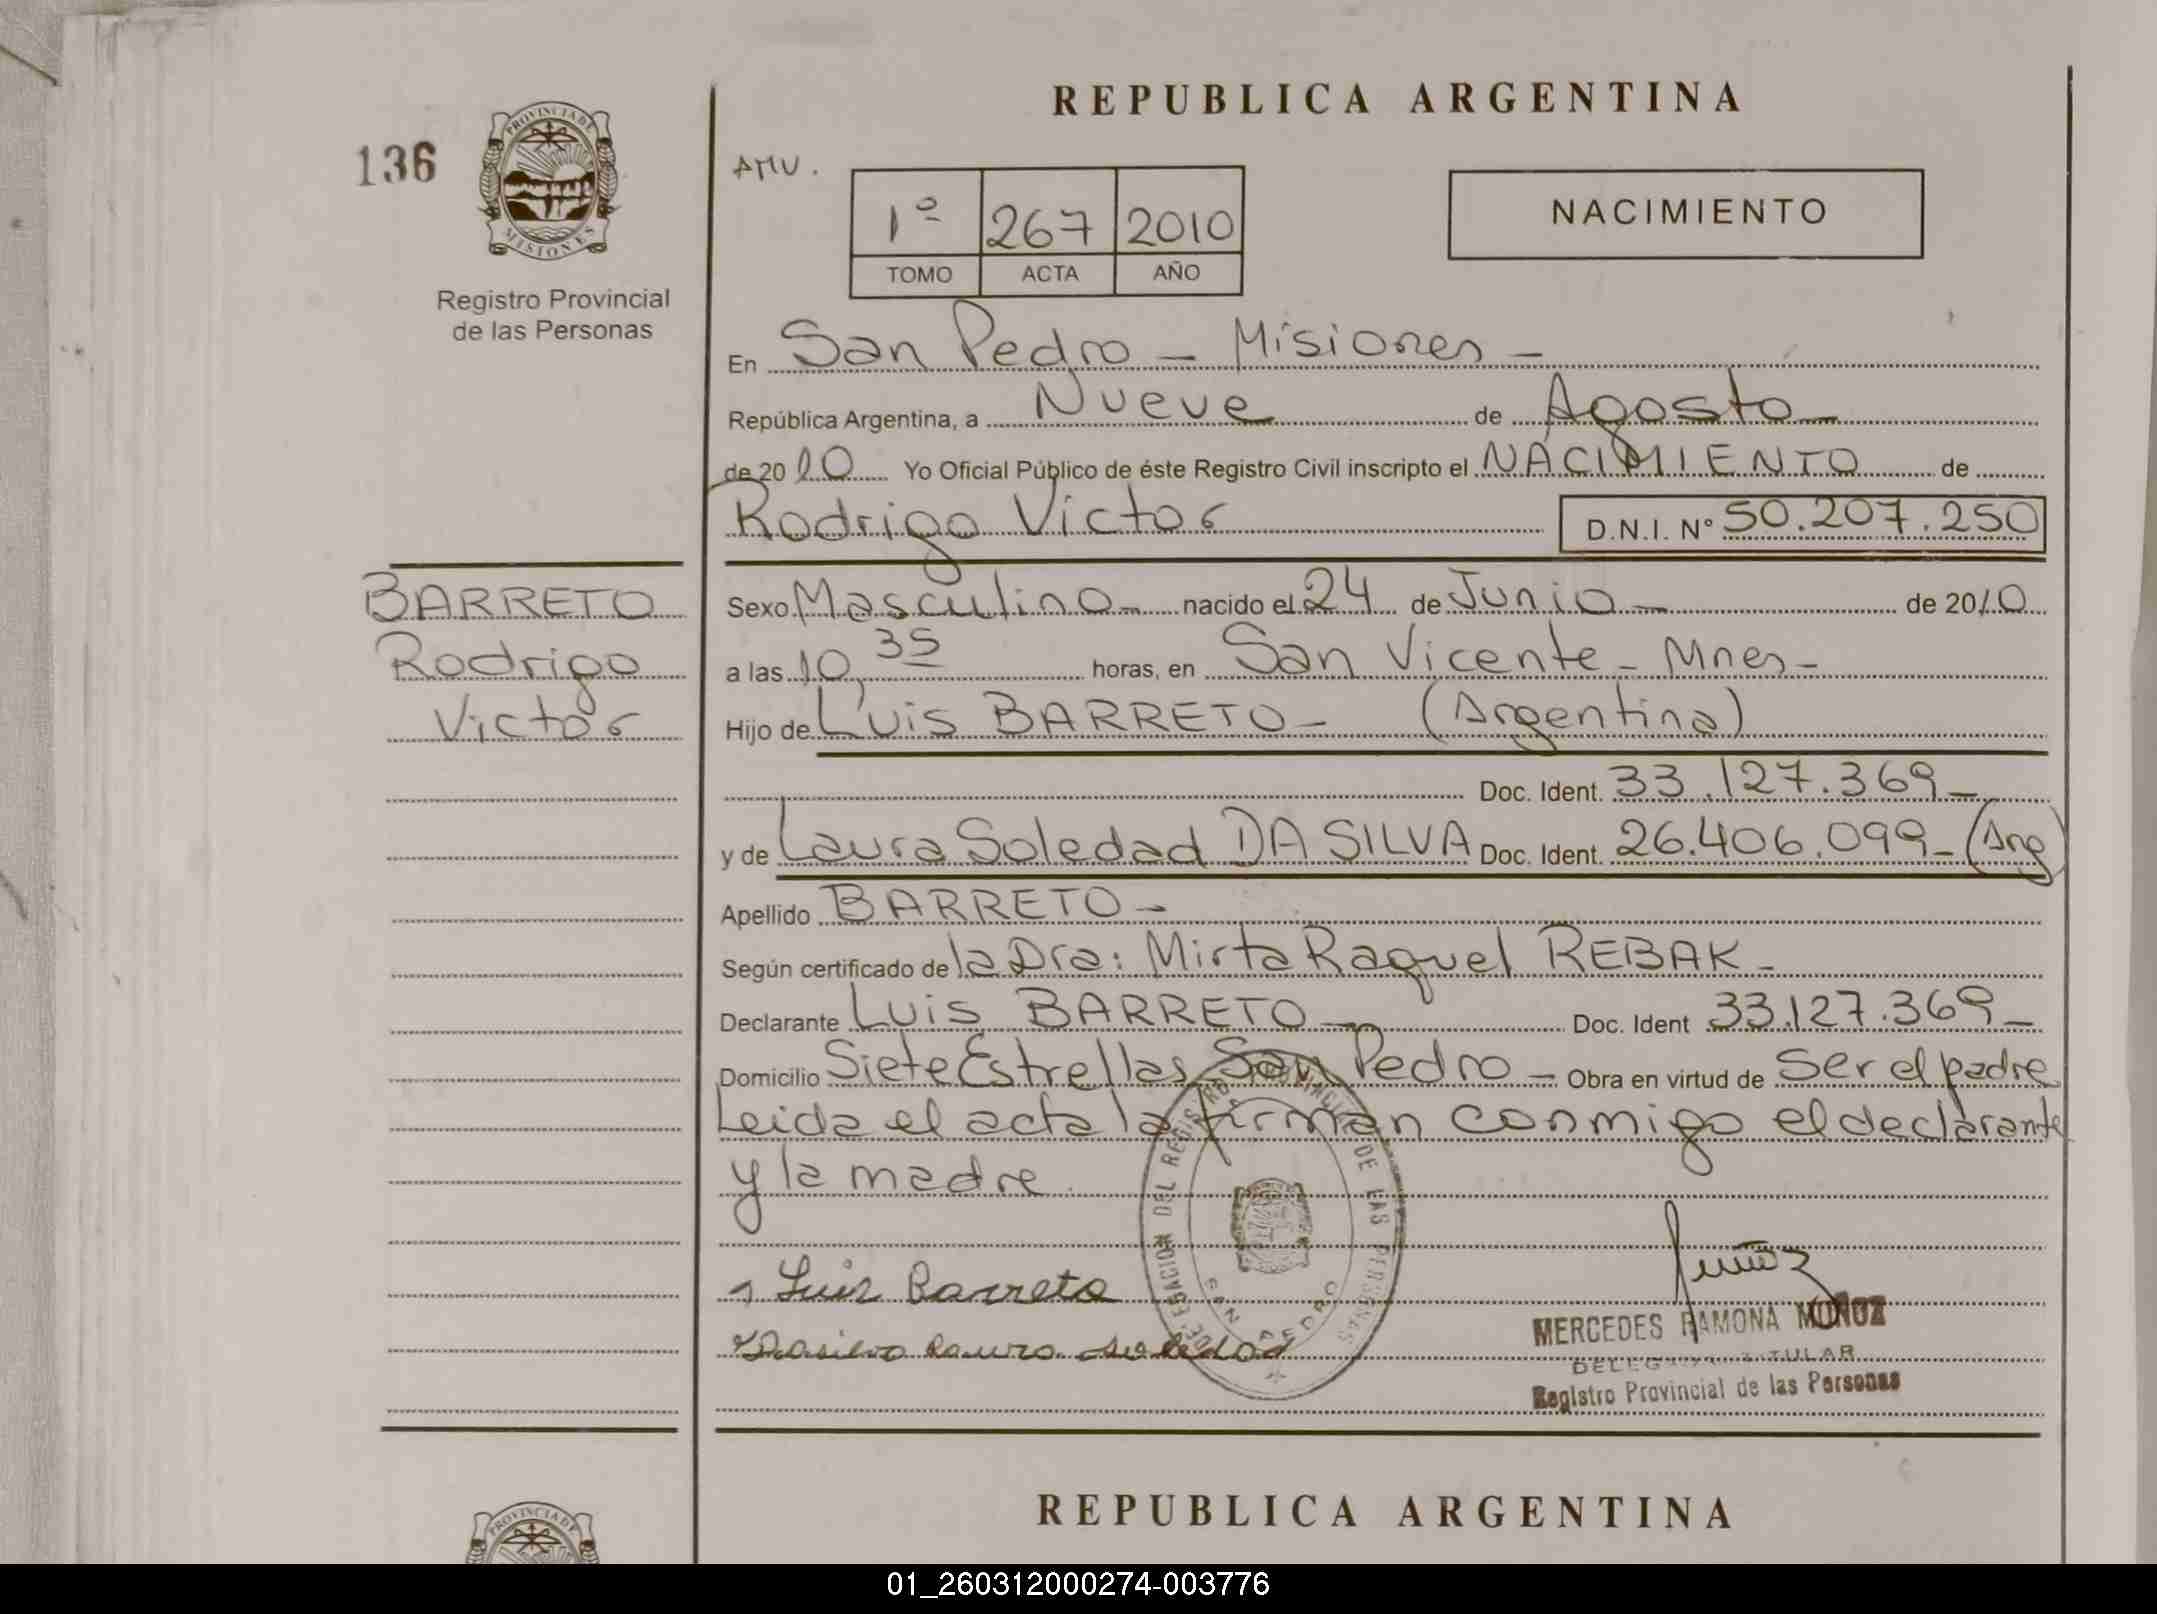 REPUBLICA ARGENTINA
136
PROVINCIA DE
MISIONES
Registro Provincial
de las Personas
AMU.
1º 267 2010
TOMO ACTA AÑO
NACIMIENTO
En San Pedro - Misiones -
República Argentina, a Nueve de Agosto
de 2010 Yo Oficial Público de éste Registro Civil inscripto el NACIMIENTO de
Rodrigo Victor D.N.I. Nº 50.207.250
BARRETO
Rodrigo
Victor
Sexo Masculino - nacido el 24 de Junio - de 2010
a las 10,35 horas, en San Vicente - Mnes -
Hijo de Luis BARRETO - (Argentina)
Doc. Ident. 33.127.369 -
y de Laura Soledad DA SILVA Doc. Ident. 26.406.099 - (Arg)
Apellido BARRETO -
Según certificado de la Dra: Mirta Raquel REBAK -
Declarante Luis BARRETO - Doc. Ident 33.127.369 -
Domicilio Siete Estrellas San Pedro - Obra en virtud de ser el padre
Leida el acta la firman conmigo el declarante
y la madre
DELEGACION DEL REGISTRO PROVINCIAL DE LAS PERSONAS
SAN PEDRO
Luis Barreto
Dasilva Laura Soledad
Muñoz
MERCEDES RAMONA MUÑOZ
DELEGADA TITULAR
Registro Provincial de las Personas
REPUBLICA ARGENTINA
PROVINCIA DE
01_260312000274-003776